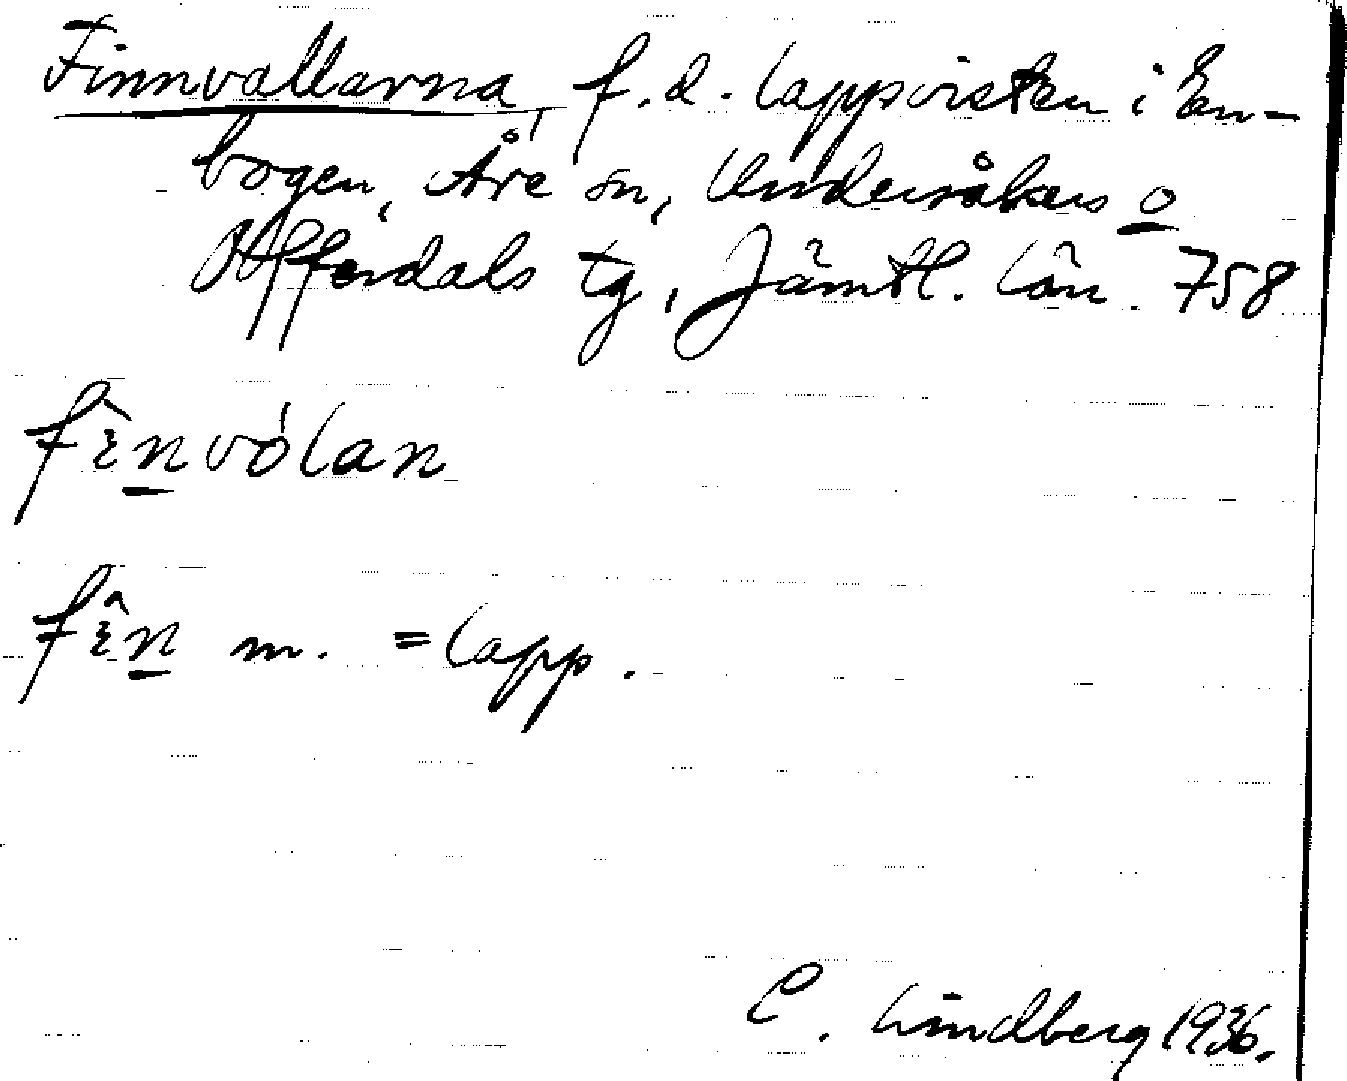 Finnvallarna, f.d. lappvisten i En-
bogen, Åre sn, Undersåkers o
Offerdals tg, Jämtl. län. 758
fɪ̂n̲vólan
fɪ̂n̲ m. = lapp.
C. Lindberg 1936.